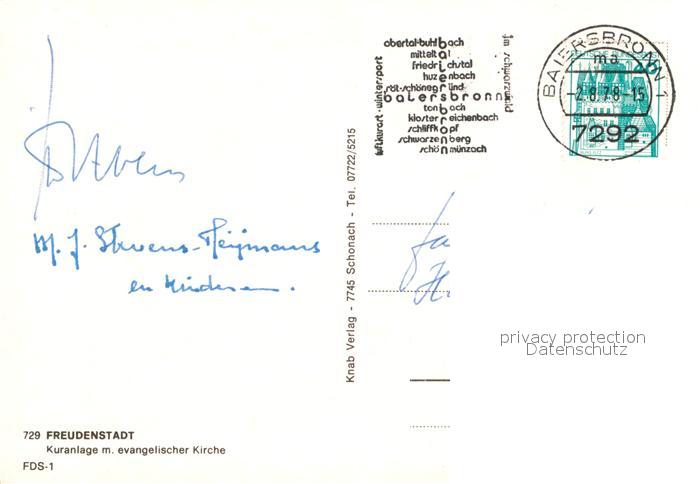 obertal·buhlbach
mitteltal
friedrichstal
huzenbach
röt-schönegründ
baiersbronn
tonbach
kloster reichenbach
schliffkopf
schwarzenberg
schönmünzach
luftkurort·wintersport
im schwarzwald
BAIERSBRONN 1
ma
-2.8.78-15
7292
DEUTSCHE BUNDESPOST
M. J. Stevens-Heijmans
en kinderen.
Knab Verlag - 7745 Schonach - Tel. 07722/5215
privacy protection
Datenschutz
729 FREUDENSTADT
Kuranlage m. evangelischer Kirche
FDS-1